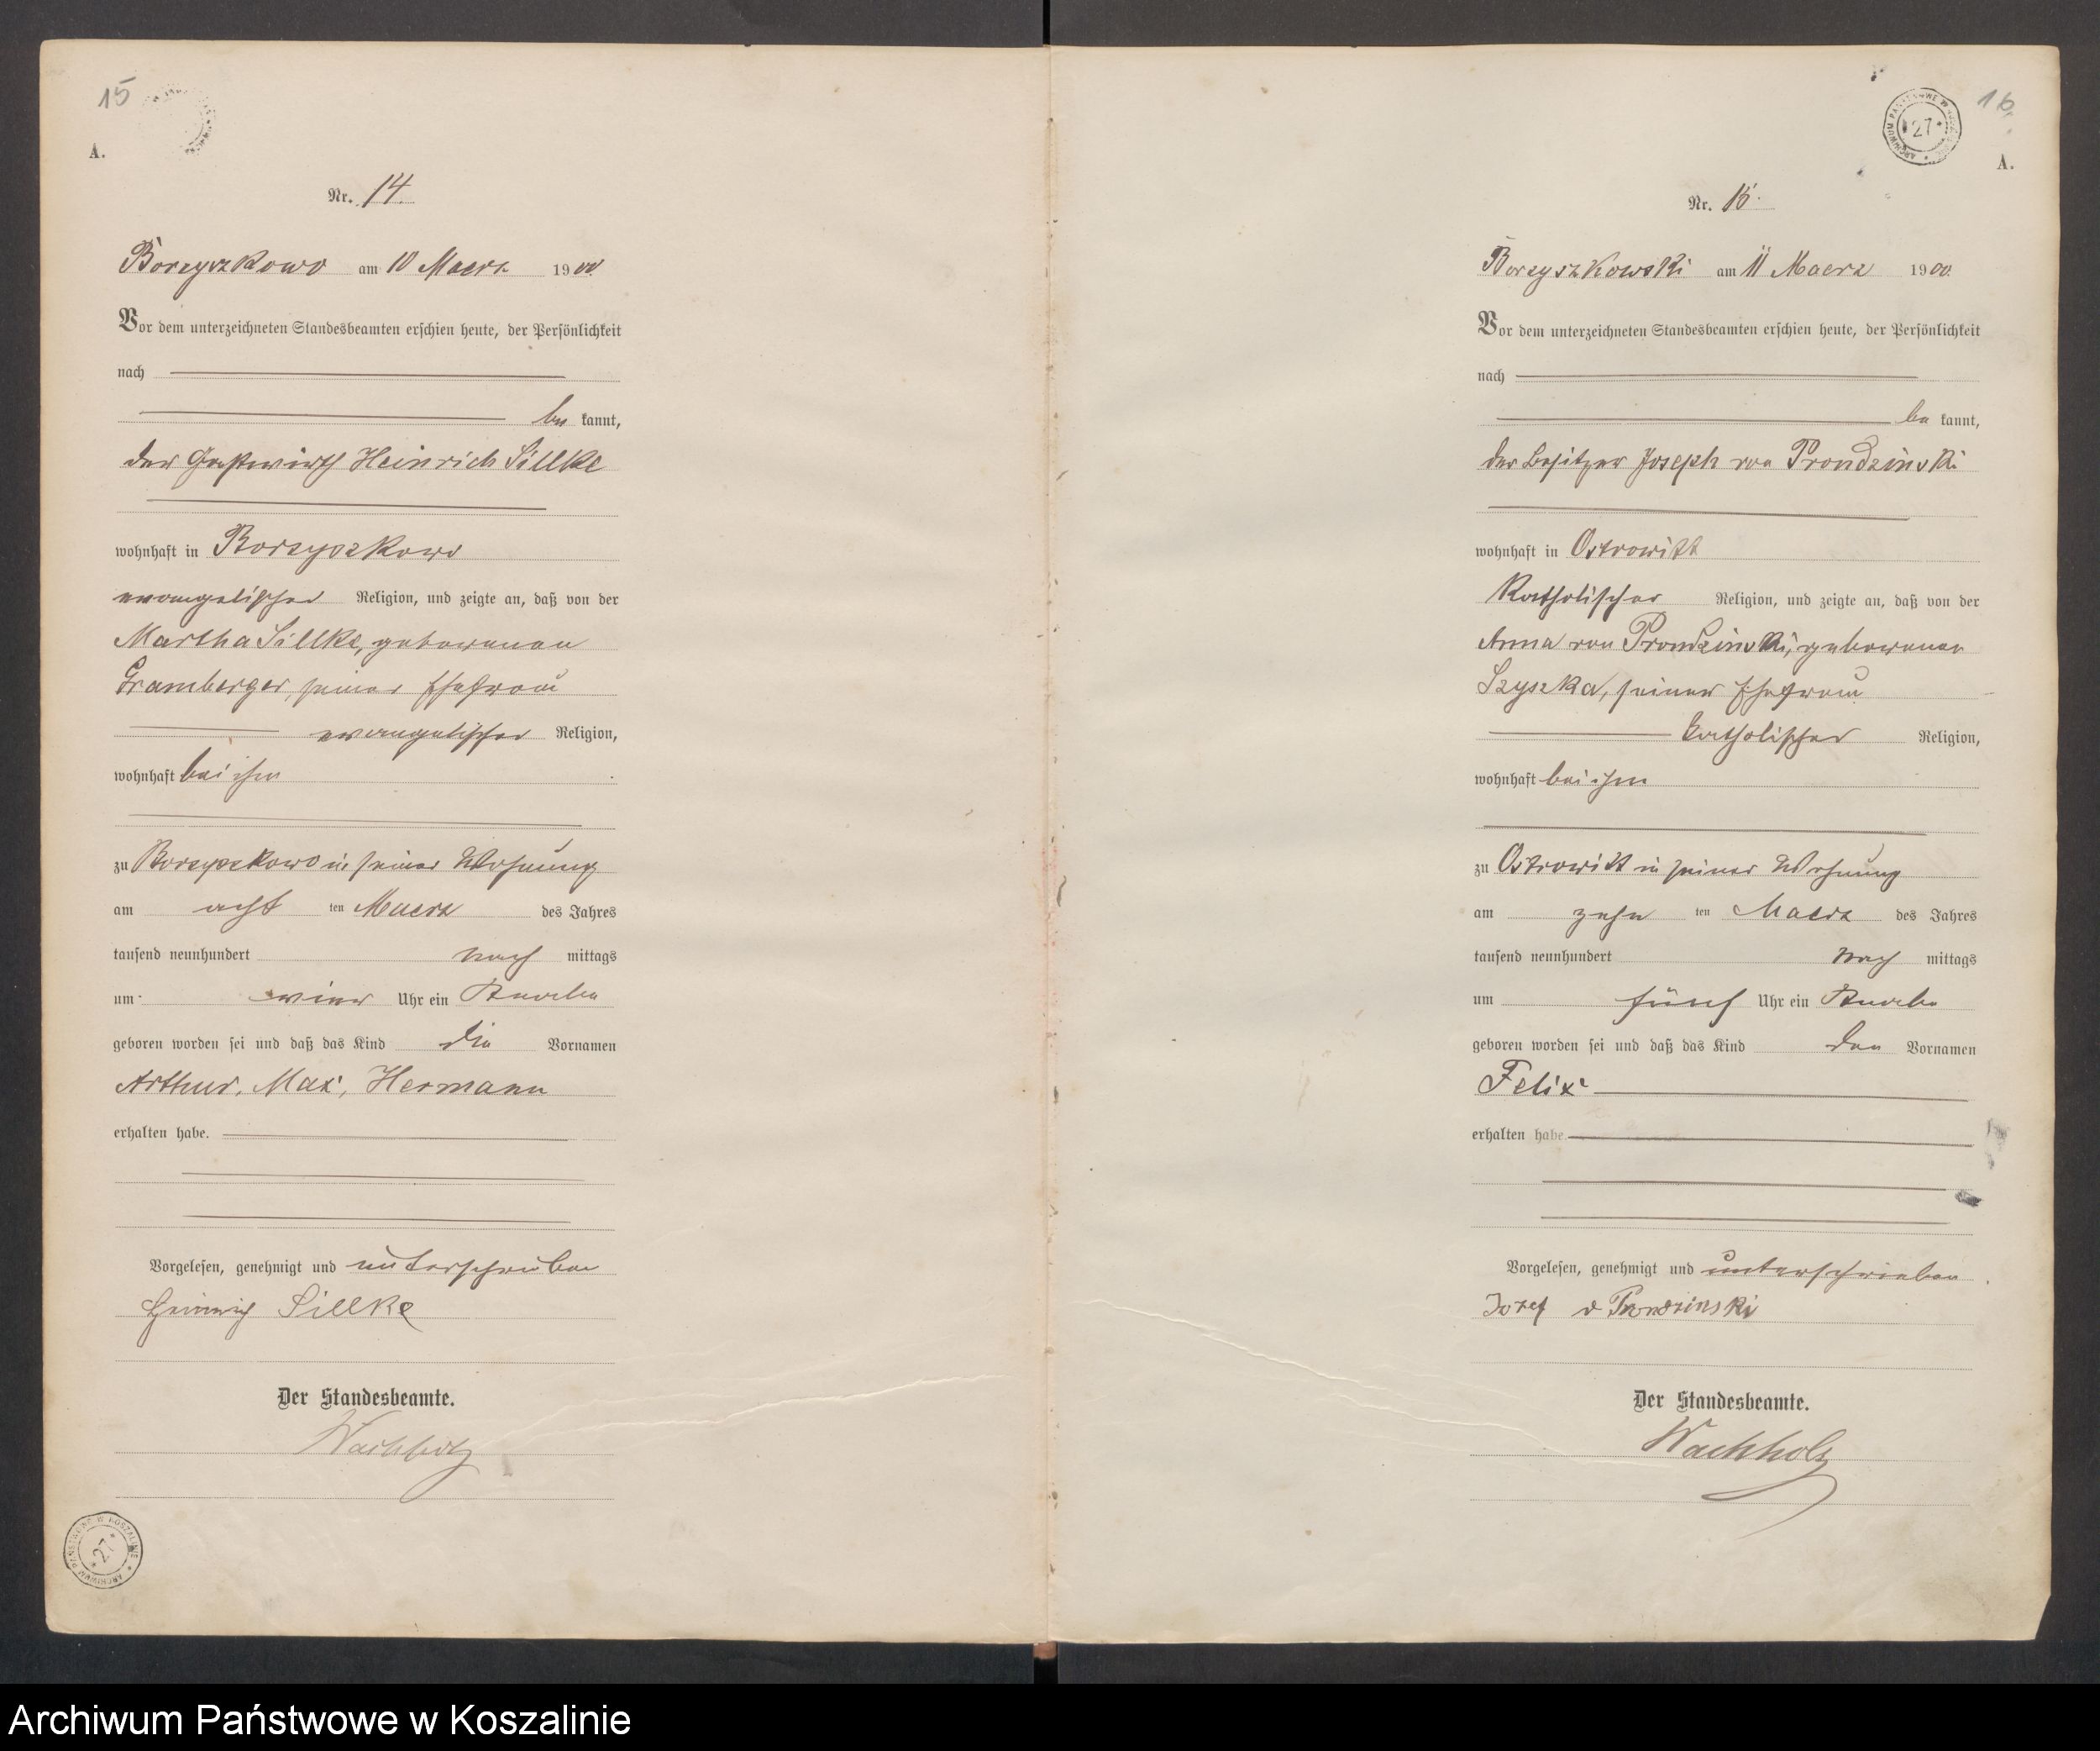 15
A.
Nr. 14.
Borzyszkowo am 10 Maerz 1900.
Vor dem unterzeichneten Standesbeamten erschien heute, der Persönlichkeit
nach
be kannt,
der Gastwirth Heinrich Sillke
wohnhaft in Borzyszkowo
evangelischer Religion, und zeigte an, daß von der
Martha Sillke, geborenen
Gramberger, seiner Ehefrau
evangelischer Religion,
wohnhaft bei ihm
zu Borzyszkowo in seiner Wohnung
am acht ten Maerz des Jahres
tausend neunhundert nach mittags
um vier Uhr ein Knabe
geboren worden sei und daß das Kind die Vornamen
Arthur, Max, Hermann
erhalten habe.
Vorgelesen, genehmigt und unterschrieben
Heinrich Sillke
Der Standesbeamte.
Wachholz
ARCHIWUM PAŃSTWOWE W KOSZALINIE
27
16
ARCHIWUM PAŃSTWOWE W KOSZALINIE
27
A.
Nr. 15.
Borzyszkowski am 11 Maerz 1900.
Vor dem unterzeichneten Standesbeamten erschien heute, der Persönlichkeit
nach
be kannt,
der Besitzer Joseph von Prondzinski
wohnhaft in Ostrowitt
Katholischer Religion, und zeigte an, daß von der
Anna von Prondzinski, geborenen
Szyszka, seiner Ehefrau
katholischer Religion,
wohnhaft bei ihm
zu Ostrowitt in seiner Wohnung
am zehn ten Maerz des Jahres
tausend neunhundert nach mittags
um fünf Uhr ein Knabe
geboren worden sei und daß das Kind den Vornamen
Felix
erhalten habe.
Vorgelesen, genehmigt und unterschrieben
Jozef v Prondzinski
Der Standesbeamte.
Wachholz
Archiwum Państwowe w Koszalinie